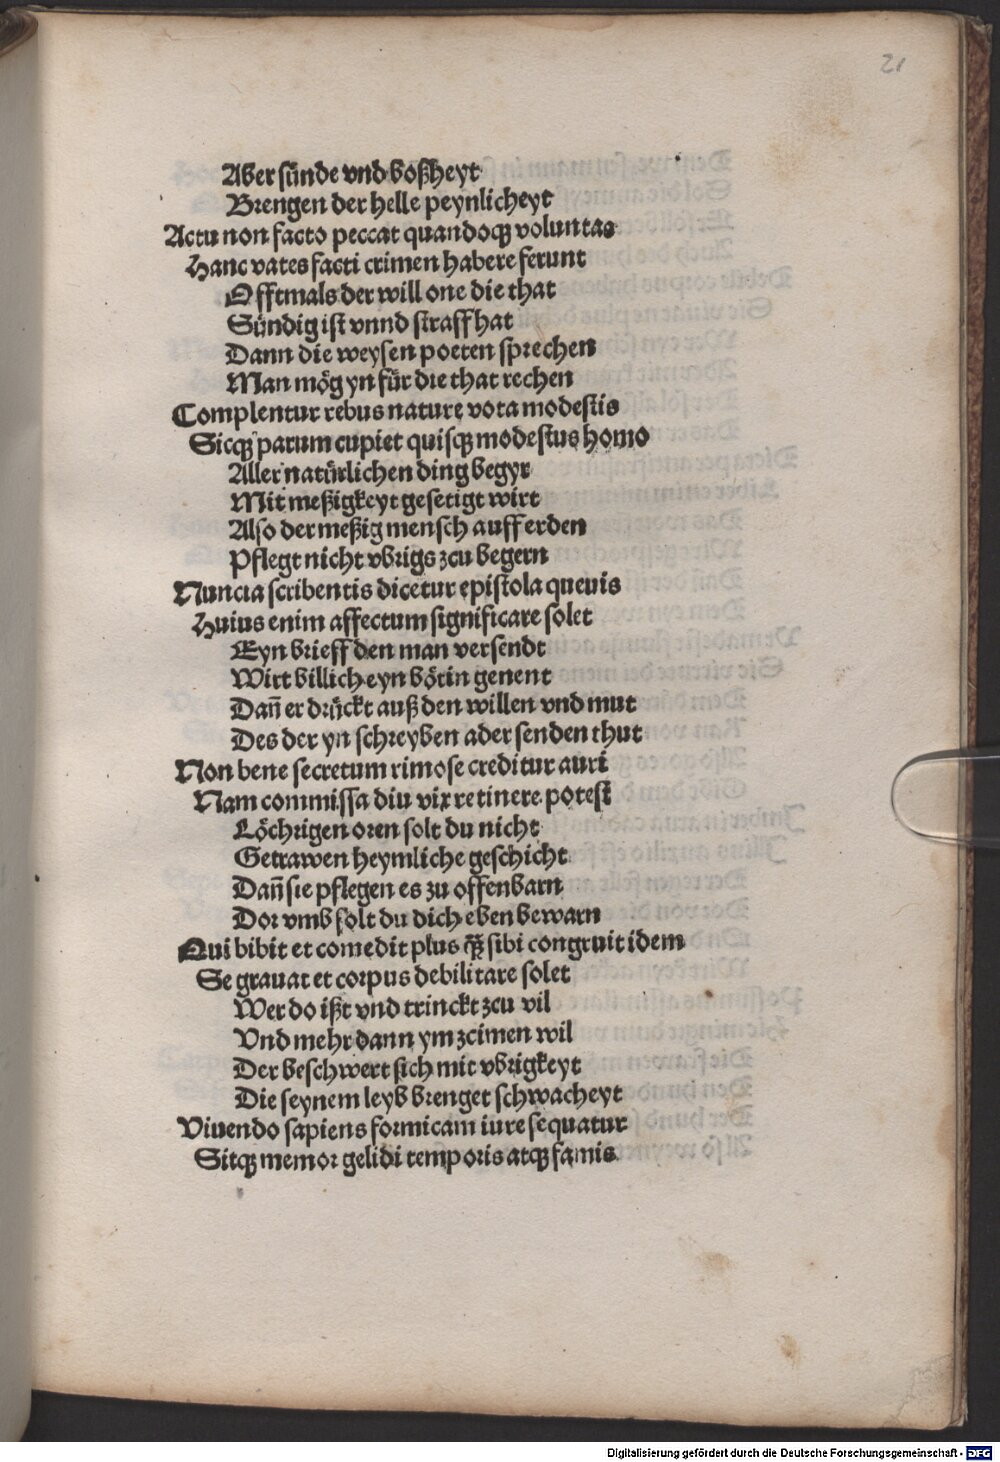 21
Aber sünde vnd boßheyt
Brengen der helle peynlicheyt
Actu non facto peccat quandoqꝫ voluntas
Hanc vates facti crimen habere ferunt
Offtmals der will one die that
Sündig ist vnnd straff hat
Dann die weysen poeten sprechen
Man mög yn für die that rechen
Complentur rebus nature vota modestis
Sicqꝫ parum cupiet quisqꝫ modestus homo
Aller natürlichen ding begyr
Mit meßigkeyt gesetigt wirt
Also der meßig mensch auff erden
Pflegt nicht vbrigs zcu begern
Nuncia scribentis dicetur epistola queuis
Huius enim affectum significare solet
Eyn brieff den man versendt
Wirt billich eyn bötin genent
Dañ er drückt auß den willen vnd mut
Des der yn schreyben ader senden thut
Non bene secretum rimose creditur auri
Nam commissa diu vix retinere potest
Löchrigen oren solt du nicht
Getrawen heymliche geschicht
Dañ sie pflegen es zu offenbarn
Dor vmb solt du dich eben bewarn
Qui bibit et comedit plus qꝫ̃ sibi congruit idem
Se grauat et corpus debilitare solet
Wer do ißt vnd trinckt zcu vil
Vnd mehr dann ym zcimen wil
Der beschwert sich mit vbrigkeyt
Die seynem leyb brenget schwacheyt
Viuendo sapiens formicam iure sequatur
Sitqꝫ memor gelidi temporis atqꝫ famis
Digitalisierung gefördert durch die Deutsche Forschungsgemeinschaft - DFG